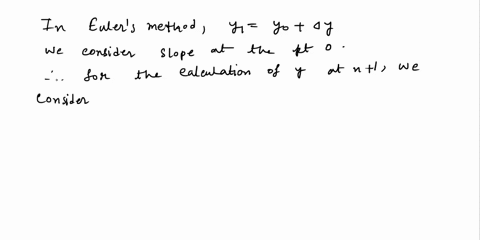 In Euler's method, y₁ = y₀ + Δy
we consider slope at the pt 0.
∴ for the calculation of y at n+1, we
consider